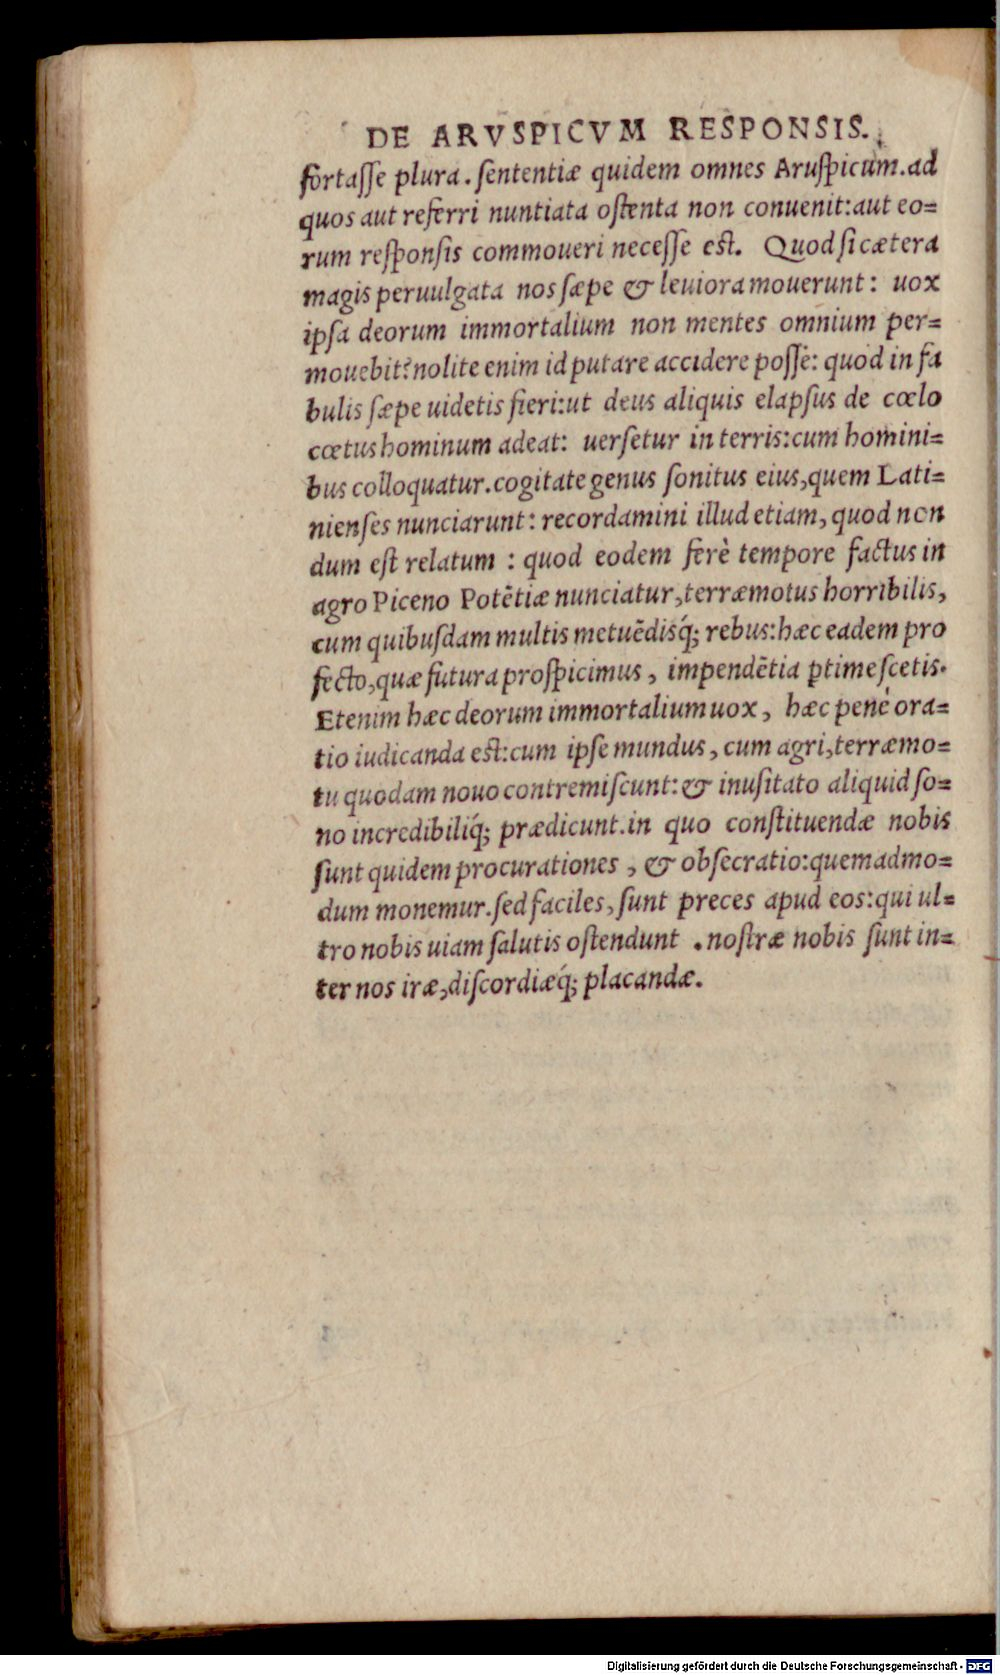 DE ARVSPICVM RESPONSIS.
fortaſſe plura. ſententiæ quidem omnes Aruſpicum. ad
quos aut referri nuntiata oſtenta non conuenit: aut eo=
rum reſponſis commoueri neceſſe eſt. Quod ſi cætera
magis peruulgata nos ſæpe & leuiora mouerunt: uox
ipſa deorum immortalium non mentes omnium per=
mouebit? nolite enim id putare accidere poſſe: quod in fa
bulis ſæpe uidetis fieri: ut deus aliquis elapſus de cœlo
cœtus hominum adeat: uerſetur in terris: cum homini=
bus colloquatur. cogitate genus ſonitus eius, quem Lati=
nienſes nunciarunt: recordamini illud etiam, quod non
dum eſt relatum : quod eodem ferè tempore factus in
agro Piceno Potētiæ nunciatur, terræmotus horribilis,
cum quibuſdam multis metuēdisq́; rebus: hæc eadem pro
fecto, quæ futura proſpicimus, impendētia ꝑtimeſcetis.
Etenim hæc deorum immortalium uox, hæc penè ora=
tio iudicanda eſt: cum ipſe mundus, cum agri, terræmo=
tu quodam nouo contremiſcunt: & inuſitato aliquid ſo=
no incredibiliq́; prædicunt. in quo conſtituendæ nobis
ſunt quidem procurationes, & obſecratio: quemadmo=
dum monemur. ſed faciles, ſunt preces apud eos: qui ul=
tro nobis uiam ſalutis oſtendunt . noſtræ nobis ſunt in=
ter nos iræ, diſcordiæq́; placandæ.
Digitalisierung gefördert durch die Deutsche Forschungsgemeinschaft - DFG